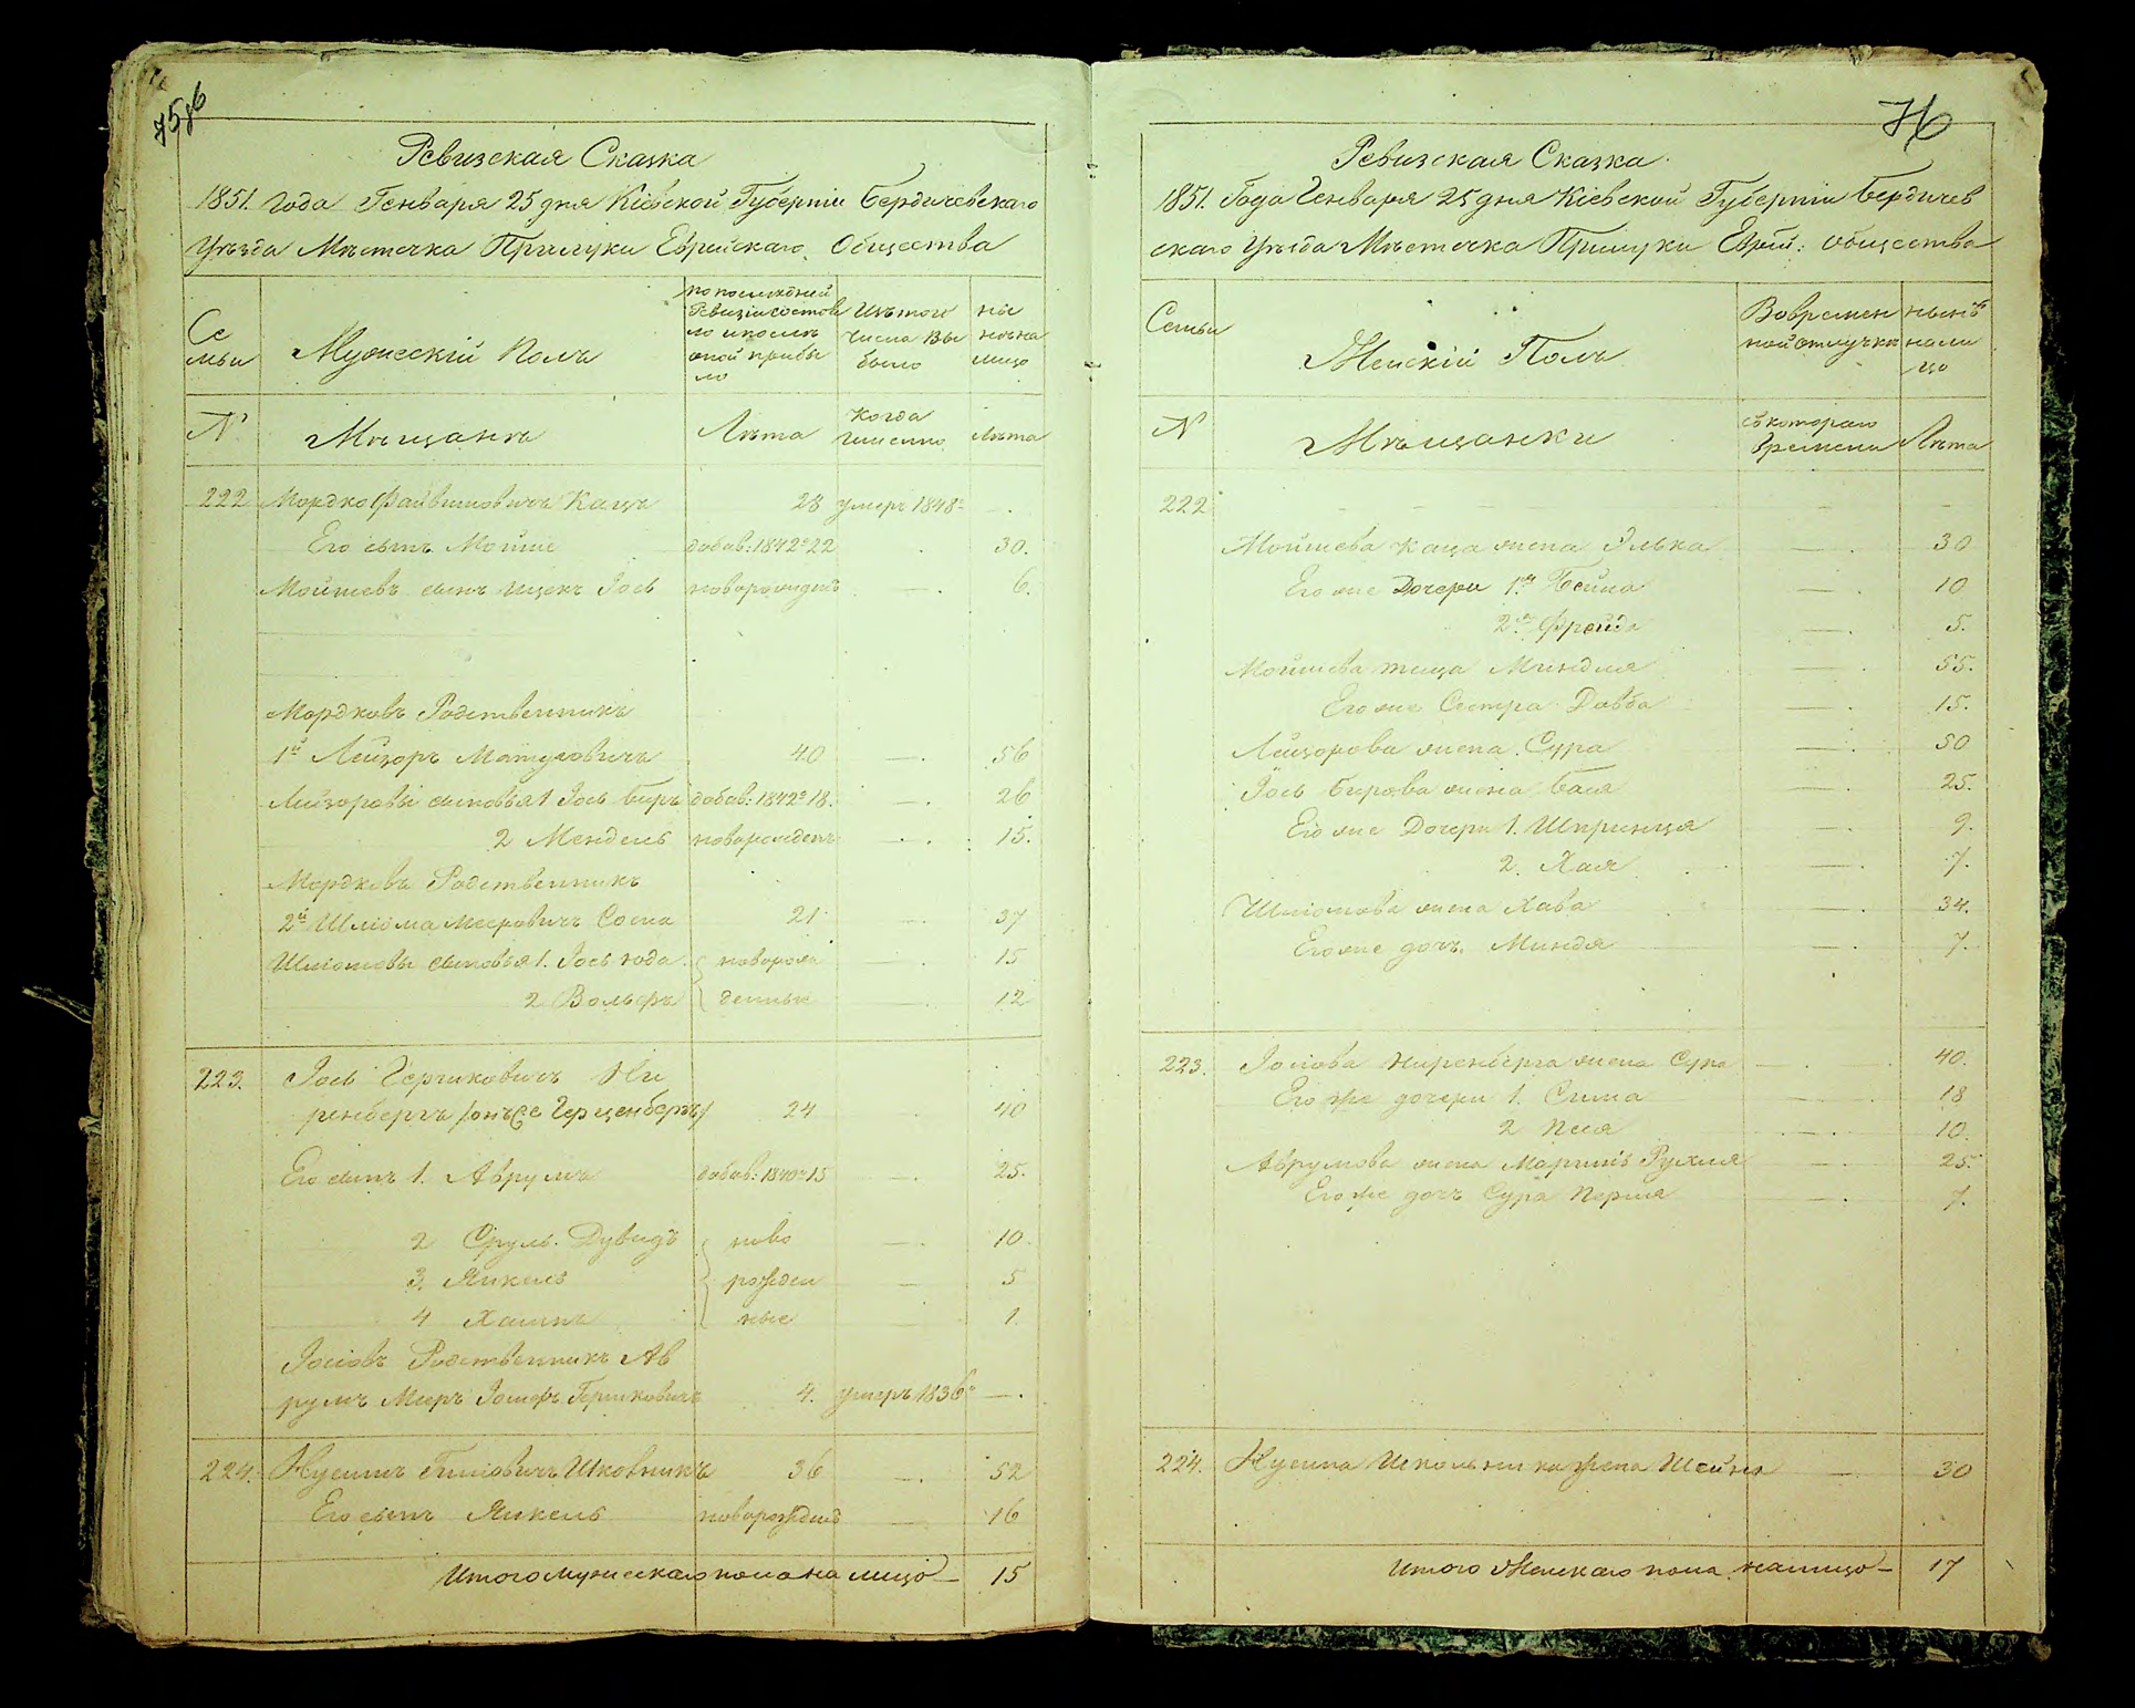 75об
Ревизская Сказка
1851. года Генваря 25 дня Кіевской Губерніи Бердичевскаго
Уѣзда Мѣстечка Прилуки Еврейскаго Общества
Се
мьи
Мужескій Полъ
по послѣдней
Ревизіи состоя
ло и послѣ
оной прибы
ло
Изъ того
числа Вы
было
ны
нѣ на
лицо
N
Мѣщанъ
Лѣта
Когда
именно
Лѣта
222 Мордко Файвишовичъ Кацъ 28 умеръ 1848 - .
Его сынъ Мойше добав: 1842 22 . 30.
Мойшевъ сынъ Ицекъ Іось новорожденъ — . 6.
Мордковъ Родственникъ
1й Лейзоръ Матусовичъ 40 — . 56
Лейзоровы сыновья 1 Іось Беръ добав: 1842 18. — . 26
2 Мендель новорожденъ — . 15.
Мордковъ Родственникъ
2й Шліома Мееровичъ Сосна 21 — . 37
Шліомовы сыновья 1. Іось новорож — . 15
2 Вольфъ денные — . 12
223. Іось Гершковичъ Ни
ренбергъ /онъ же Герценбергъ/ 24 . 40
Его сынъ 1. Аврумъ добав: 1840 15 — . 25.
2 Сруль Дувидъ ново — . 10
3. Янкель рожден — 5
4 Хаимъ ные 1.
Іосіовъ Родственникъ Ав
румъ Мееръ Іосифъ Гершковичъ 4. умеръ 1836 — .
224. Нусимъ Школьникъ 36 — . 52
Его сынъ Янкель новорожденъ — 16
Итого мужескаго пола на лицо — 15
76
Ревизская Сказка
1851. Года Генваря 25 дня Кіевской Губерніи Бердичев
скаго Уѣзда Мѣстечка Прилуки Еврей: общества
Семьи
Женскій Полъ
Во времен
ной отлучкѣ
нынѣ
на ли
цо
N
Мѣщанки
съ котораго
времени
Лѣта
222
Мойшева Каца жена Элька — . 30
Его же Дочери 1я Бейла — . 10
2я Фрейда — . 5.
Мойшева теща Миндля — . 55.
Его же Сестра Довба — . 15.
Лейзорова жена Сура — . 50
Іось Берова жена Бася — . 25.
Его же Дочери 1. Шпринця — . 9.
2. Хая — . 7.
Шліомова жена Хава — . 34.
Его же дочь Миндя — . 7.
223. Іосіова Ниренберга жена Сура — . 40.
Его же дочери 1. Сима . 18
2 Песя — . 10.
Аврумова жена Рухля — . 25.
Его же дочь Сура Перля — . 7.
224. Нусима Школьника жена Шейна — 30
Итого Женскаго пола на лицо — 17